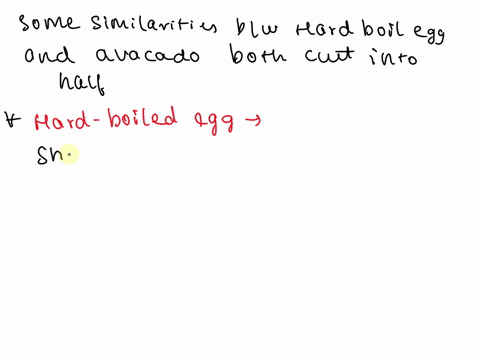 Some similarities b/w Hard boil egg
and avacado both cut into
half
* Hard-boiled egg →
Sh